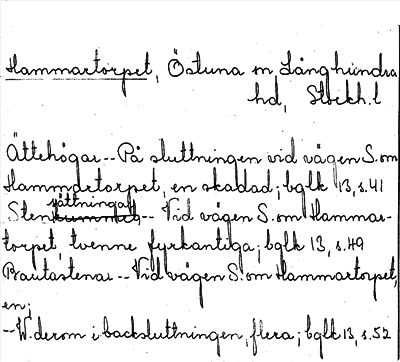 Hammartorpet, Östuna sn Långhundra
hd, Stockh.l
Ättehögar -- På sluttningen vid vägen S.om
Hammartorpet, en skadad; bglk 13, s.41
sättningar
Stenkummel -- Vid vägen S.om Hammar-
torpet, tvenne fyrkantiga; bglk 13, s.49
Bautastenar -- Vid vägen S.om Hammartorpet,
en;
-- V.derom i backsluttningen, flera; bglk 13, s.52